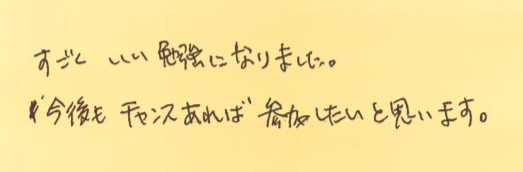 すごく いい 勉強になりました。
今後も チャンスあれば 参加したいと思います。